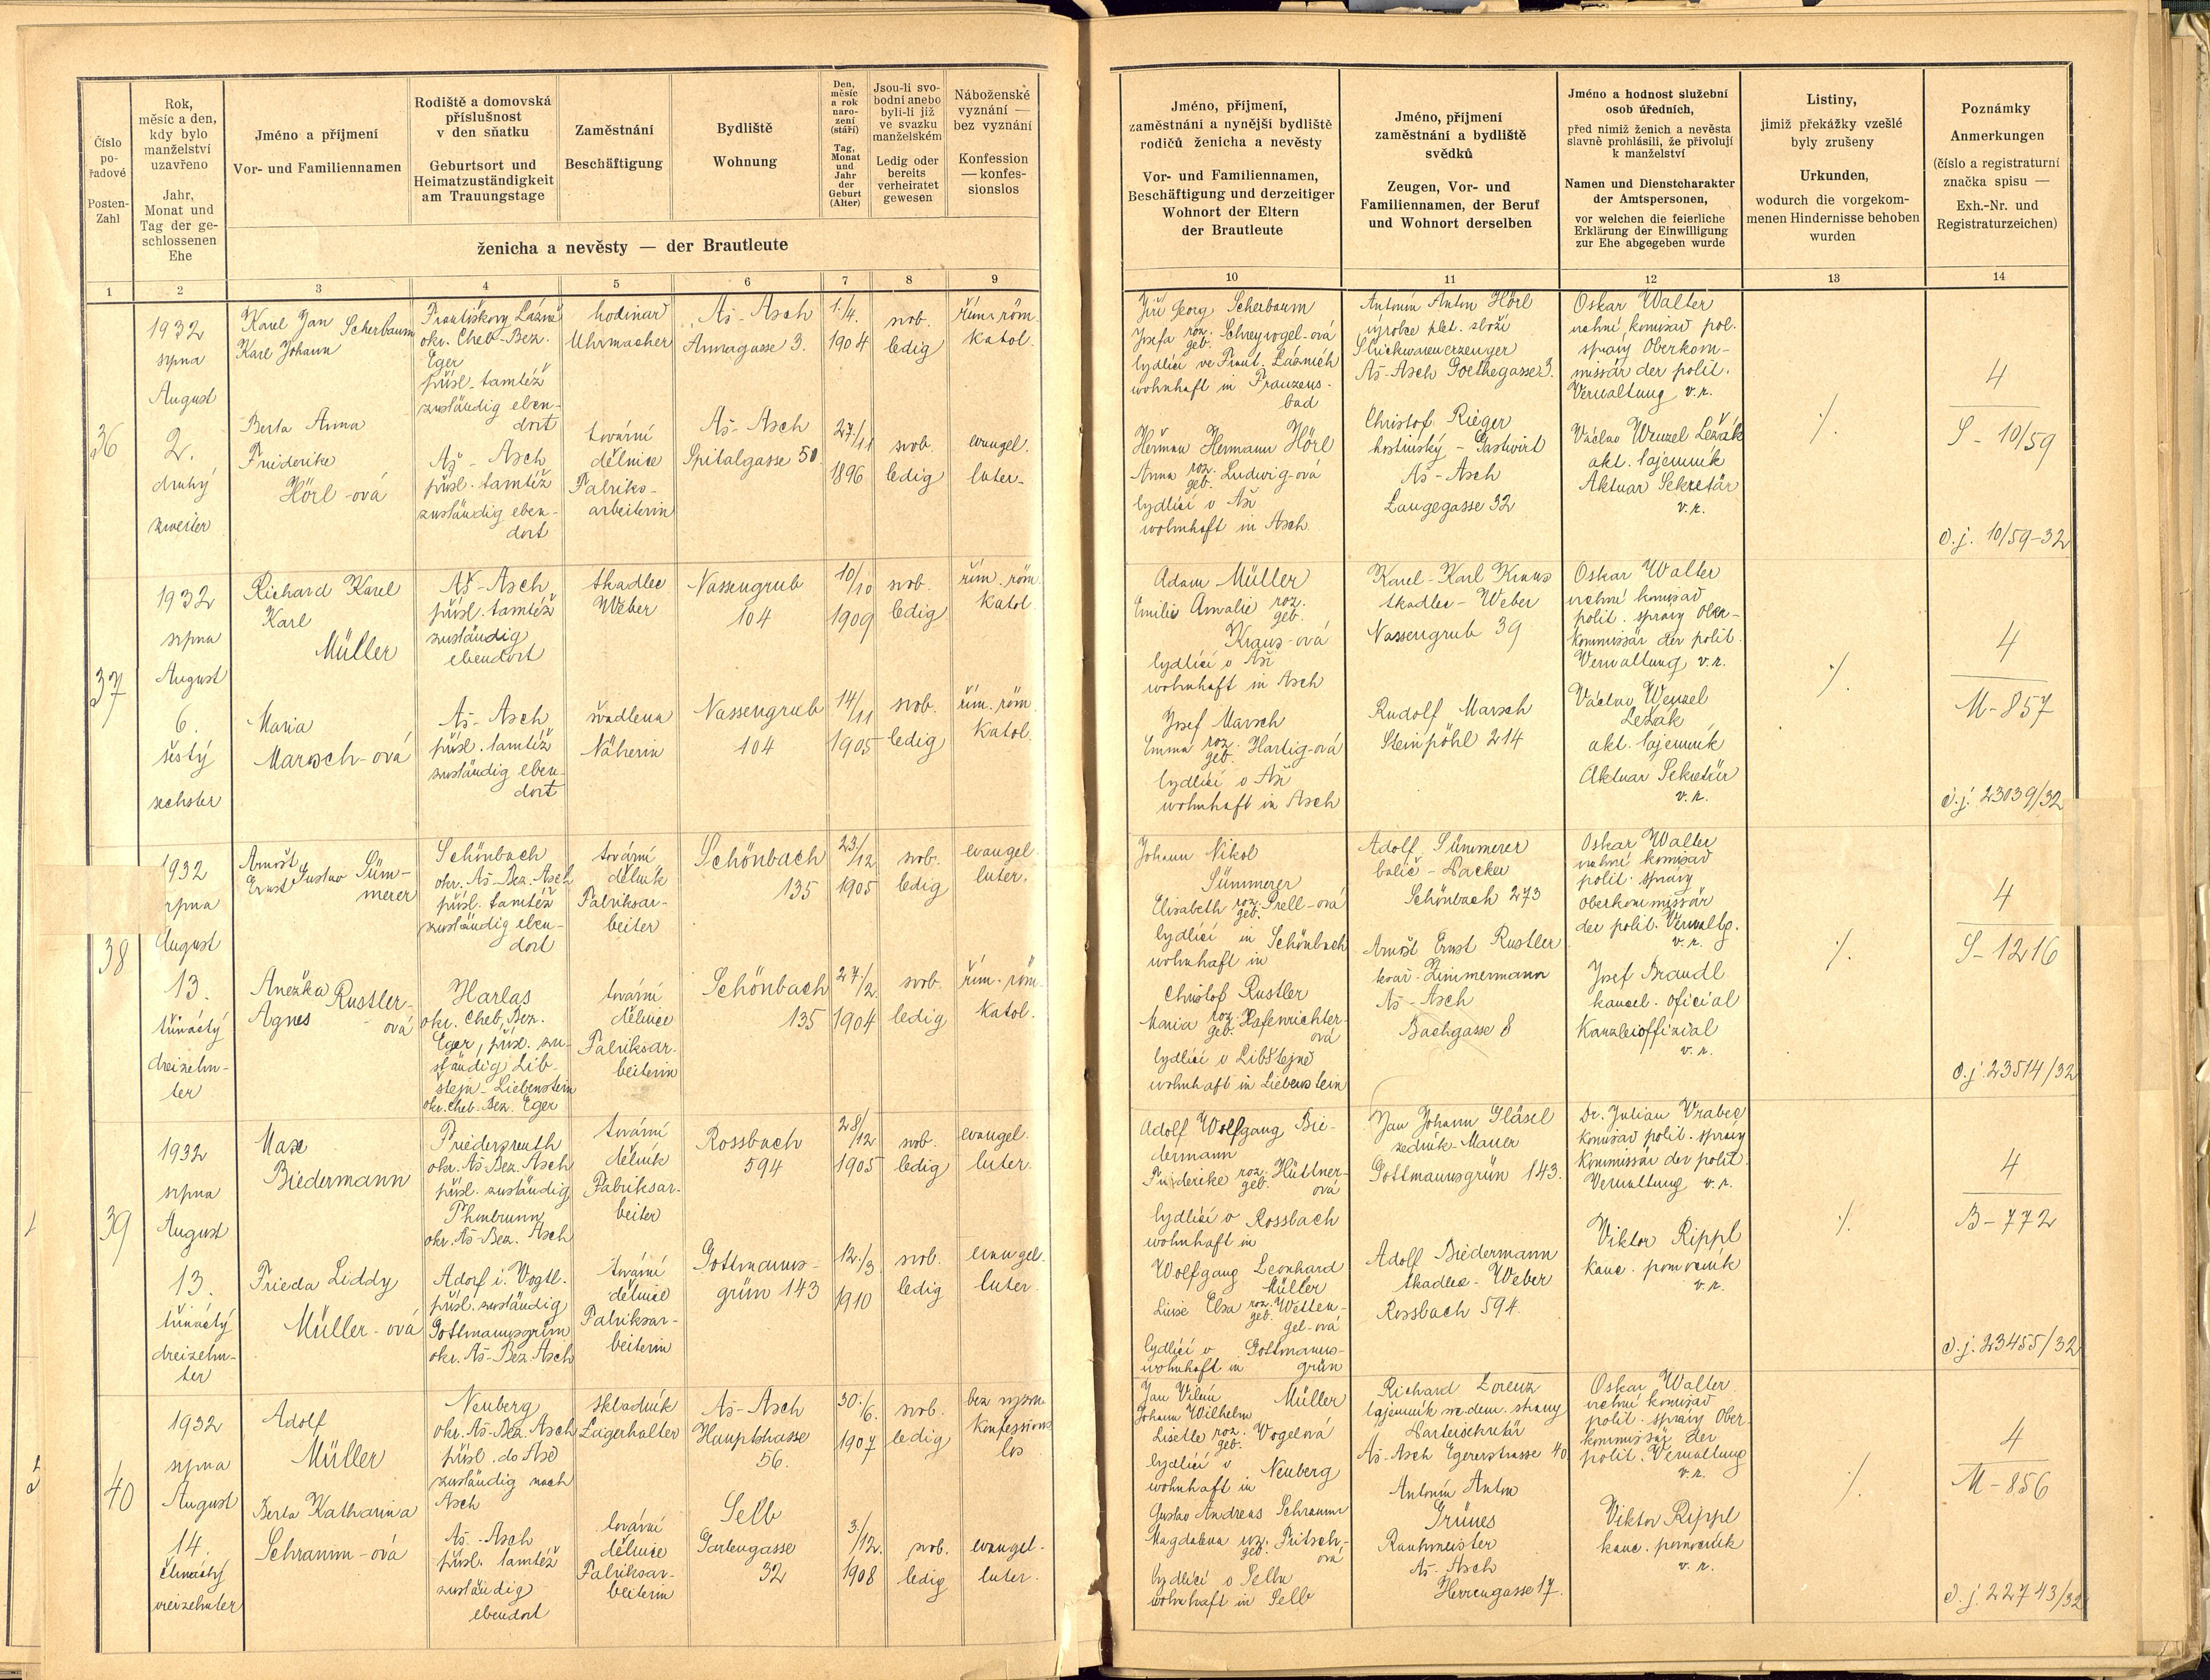 Číslo
po-
řadové
Posten-
Zahl
Rok,
měsíc a den,
kdy bylo
manželství
uzavřeno
Jahr,
Monat und
Tag der ge-
schlossenen
Ehe
Jméno a příjmení
Vor- und Familiennamen
Rodiště a domovská
příslušnost
v den sňatku
Geburtsort und
Heimatzuständigkeit
am Trauungstage
Zaměstnání
Beschäftigung
Bydliště
Wohnung
Den,
měsíc
a rok
naro-
zení
(stáří)
Tag,
Monat
und
Jahr
der
Geburt
(Alter)
Jsou-li svo-
bodni anebo
byli-li již
ve svazku
manželském
Ledig oder
bereits
verheiratet
gewesen
Náboženské
vyznání —
bez vyznání
Konfession
— konfes-
sionslos
ženicha a nevěsty — der Brautleute
1 2 3 4 5 6 7 8 9
36
1932
srpna
August
2.
druhý
zweiter
Karel Jan Scherbaum
Karl Johann
Františkovy Lázně
okr. Cheb-Bez.
Eger
přísl. tamtéž
zuständig eben-
dort
hodinař
Uhrmacher
Aš-Asch
Annagasse 3.
1./4.
1904
svob.
ledig
řím. röm.
katol.
Berta Anna
Friederike
Hörl-ová
Aš-Asch
přísl. tamtéž
zuständig eben-
dort
tovární
dělnice
Fabriks-
arbeiterin
Aš-Asch
Spitalgasse 50
27/11
1896
svob.
ledig
evangel.
luter.
37
1932
srpna
August
6.
šestý
sechster
Richard Karel
Karl
Müller
Aš-Asch
přísl. tamtéž
zuständig
ebendort
tkadlec
Weber
Nassengrub
104
10/10
1909
svob.
ledig
řím. röm.
katol.
Maria
Marsch-ová
Aš-Asch
přísl. tamtéž
zuständig eben-
dort
švadlena
Näherin
Nassengrub
104
14/11
1905
svob.
ledig
řím. röm.
katol.
38
1932
srpna
August
13.
třináctý
dreizehn-
ter
Arnošt
Ernst Gustav Süm-
merer
Schönbach
okr. Aš-Bez. Asch
přísl. tamtéž
zuständig eben-
dort
tovární
dělník
Fabriksar-
beiter
Schönbach
135
23/12
1905
svob.
ledig
evangel.
luter.
Anežka Rustler-
Agnes ová
Harlas
okr. Cheb, Bez.
Eger, přísl. zu-
ständig Lib-
štejn-Liebenstein
okr. Cheb-Bez. Eger
tovární
dělnice
Fabriksar-
beiterin
Schönbach
135
27./2.
1904
svob.
ledig
řím. röm.
katol.
39
1932
srpna
August
13.
třináctý
dreizehn-
ter
Max
Biedermann
Friedersreuth
okr. Aš-Bez. Asch
přísl. zuständig
Thonbrunn
okr. Aš-Bez. Asch
tovární
dělník
Fabriksar-
beiter
Rossbach
594
28/12
1905
svob.
ledig
evangel.
luter.
Frieda Liddy
Müller-ová
Adorf i. Vogtl.
přísl. zuständig
Gottmannsgrün
okr. Aš-Bez. Asch
tovární
dělnice
Fabriksar-
beiterin
Gottmanns-
grün 143
12./3.
1910
svob.
ledig
evangel.
luter.
40
1932
srpna
August
14.
čtrnáctý
vierzehnter
Adolf
Müller
Neuberg
okr. Aš-Bez. Asch
přísl. do Aše
zuständig nach
Asch
skladník
Lagerhalter
Aš-Asch
Hauptstrasse
56.
30./6.
1907
svob.
ledig
bez vyzn.
Konfessions
los
Berta Katharina
Schramm-ová
Aš-Asch
přísl. tamtéž
zuständig
ebendort
tovární
dělnice
Fabriksar-
beiterin
Selb
Gartengasse
32
3./12.
1908
svob.
ledig
evangel.
luter.
Jméno, příjmení,
zaměstnání a nynější bydliště
rodičů ženicha a nevěsty
Vor- und Familiennamen,
Beschäftigung und derzeitiger
Wohnort der Eltern
der Brautleute
Jméno, příjmení
zaměstnání a bydliště
svědků
Zeugen, Vor- und
Familiennamen, der Beruf
und Wohnort derselben
Jméno a hodnost služební
osob úředních,
před nimiž ženich a nevěsta
slavně prohlásili, že přivolují
k manželství
Namen und Dienstcharakter
der Amtspersonen,
vor welchen die feierliche
Erklärung der Einwilligung
zur Ehe abgegeben wurde
Listiny,
jimiž překážky vzešlé
byly zrušeny
Urkunden,
wodurch die vorgekom-
menen Hindernisse behoben
wurden
Poznámky
Anmerkungen
(číslo a registraturní
značka spisu —
Exh.-Nr. und
Registraturzeichen)
10 11 12 13 14
Jiří Georg Scherbaum
Josefa roz. geb. Schreyvogel-ová
bydlící ve Frant. Lázních
wohnhaft in Franzens-
bad
Heřman Hermann Hörl
Anna roz. geb. Ludwig-ová
bydlící v Aši
wohnhaft in Asch
Antonín Anton Hörl
výrobce plet. zboží
Strickwarenerzeuger
Aš-Asch Goethegasse 3.
Christof Rieger
hostinský - Gastwirt
Aš-Asch
Langegasse 32
Oskar Walter
vrchní komisař pol.
správy Oberkom-
missär der polit.
Verwaltung v.r.
Václav Wenzel Ležák
akt. tajemník
Aktuar Sekretär
v.r.
./.
4
S-10/59
č.j. 10/59-32
Adam Müller
Emilie Amalie roz.
geb.
Kraus-ová
bydlící v Aši
wohnhaft in Asch
Josef Marsch
Emma roz. geb. Hartig-ová
bydlící v Aši
wohnhaft in Asch
Karel-Karl Kraus
tkadlec-Weber
Nassengrub 39
Rudolf Marsch
Steinpöhl 214
Oskar Walter
vrchní komisař
polit. správy Ober-
kommissär der polit.
Verwaltung v.r.
Václav Wenzel
Ležák
akt. tajemník
Aktuar Sekretär
v.r.
./.
4
M-857
č.j. 23039/32
Johann Nikol
Sümmerer
Elisabeth roz. geb. Prell-ová
bydlící in Schönbach
wohnhaft in
Christof Rustler
Maria roz. geb. Hafenrichter-
ová
bydlící v Libštejně
wohnhaft in Liebenstein
Adolf Sümmerer
balič-Packer
Schönbach 273
Arnošt Ernst Rustler
tesař-Zimmermann
Aš-Asch
Bachgasse 8
Oskar Walter
vrchní komisař
polit. správy
Oberkommissär
der polit. Verwaltg.
v.r.
Josef Brandl
kancel. oficiál
Kanzleioffizial
v.r.
./.
4
S-1216
č.j. 23514/32
Adolf Wolfgang Bie-
dermann
Friederike roz. geb. Hüttner-
ová
bydlící v Rossbach
wohnhaft in
Wolfgang Leonhard
Müller
Luise Elsa roz. geb. Wetten-
gel-ová
bydlící v Gottmanns-
wohnhaft in grün
Jan Johann Gläsel
zedník-Maurer
Gottmannsgrün 143.
Adolf Biedermann
tkadlec-Weber
Rossbach 594.
Dr. Julian Vrabec
komisař polit. správy
Kommissär der polit.
Verwaltung v.r.
Viktor Rippl
kanc. pomocník
v.r.
./.
4
B-772
č.j. 23455/32
Jan Vilém Müller
Johann Wilhelm
Lisette roz. geb. Vogelová
bydlící v Neuberg
wohnhaft in
Gustav Andreas Schramm
Magdalena roz. geb. Fritsch-
ová
bydlící v Selbu
wohnhaft in Selb
Richard Lorenz
tajemník soc. dem. strany
Parteisekretär
Aš-Asch Egererstrasse 40
Antonín Anton
Grünes
Rauhmeister
Aš-Asch
Herrengasse 17.
Oskar Walter
vrchní komisař
polit. správy Ober-
kommissär der
polit. Verwaltung
v.r.
Viktor Rippl
kanc. pomocník
v.r.
./.
4
M-856
č.j. 22743/32